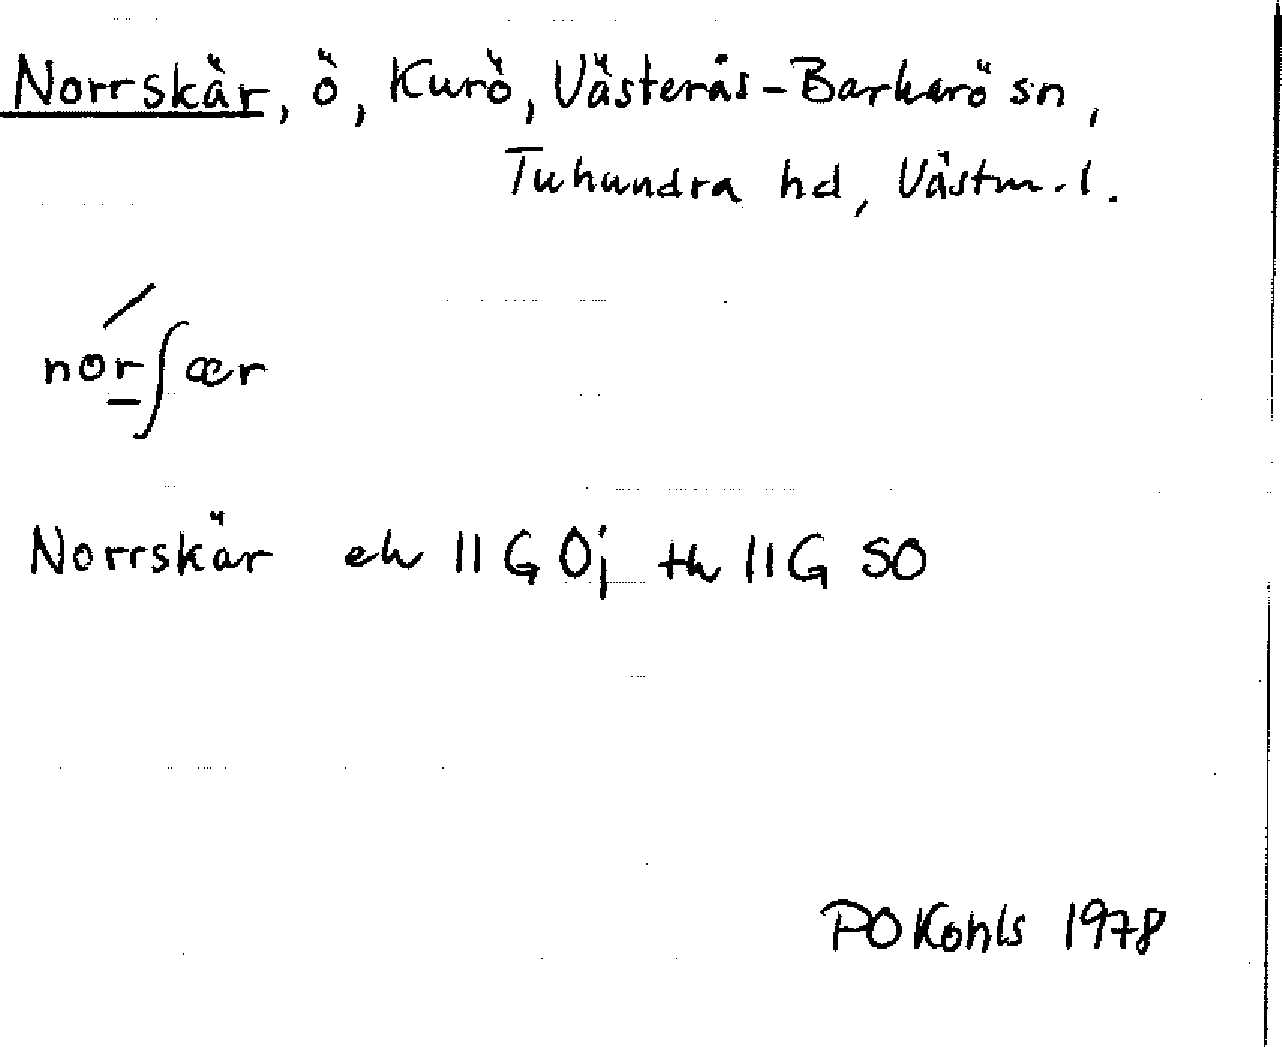 Norrskär, ö, Kurö, Västerås-Barkarö sn,
Tuhundra hd, Västm.l.
nórʃær
Norrskär ek 11G 0j tk 11G SO
POKohls 1978